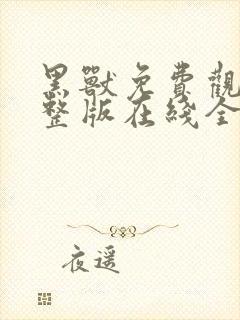 黑獸免費觀
整版在綫全
夜遥